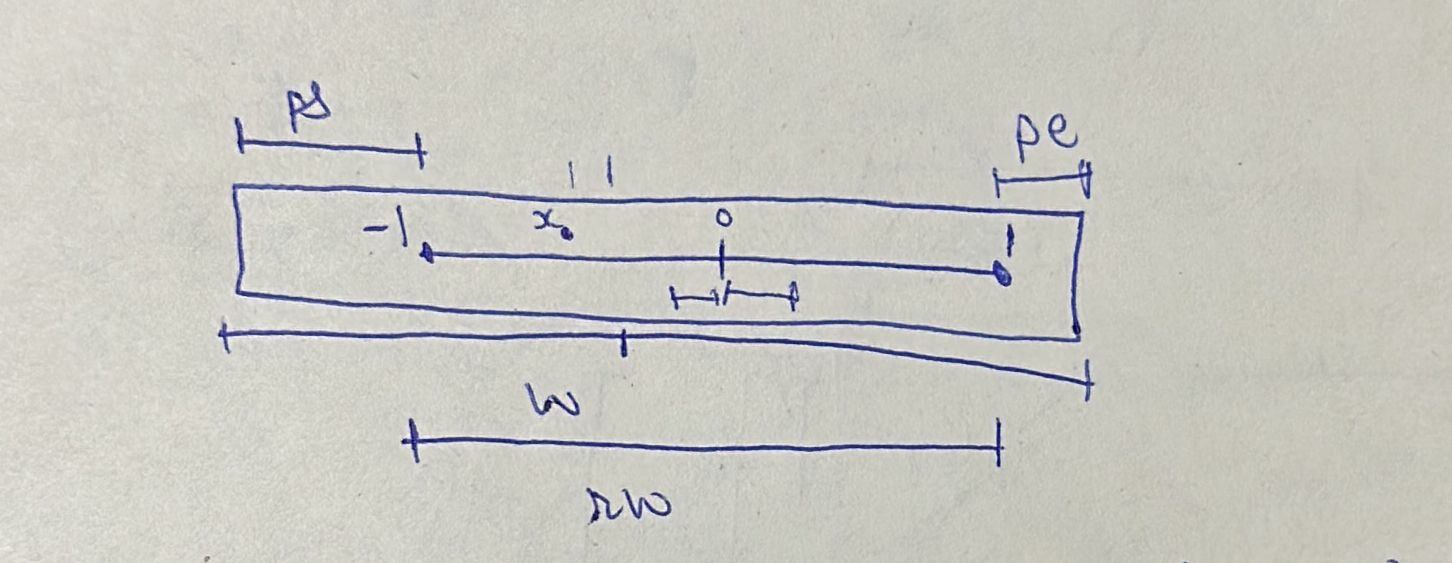 ps
pe
-1 x. 0 1
w
rw